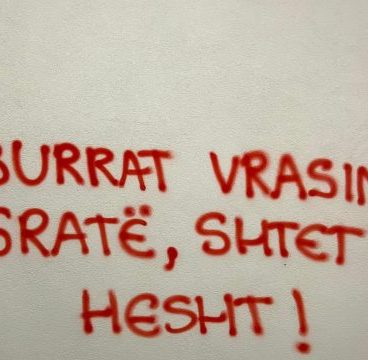 BURRAT VRASIN
GRATË, SHTET
HESHT!